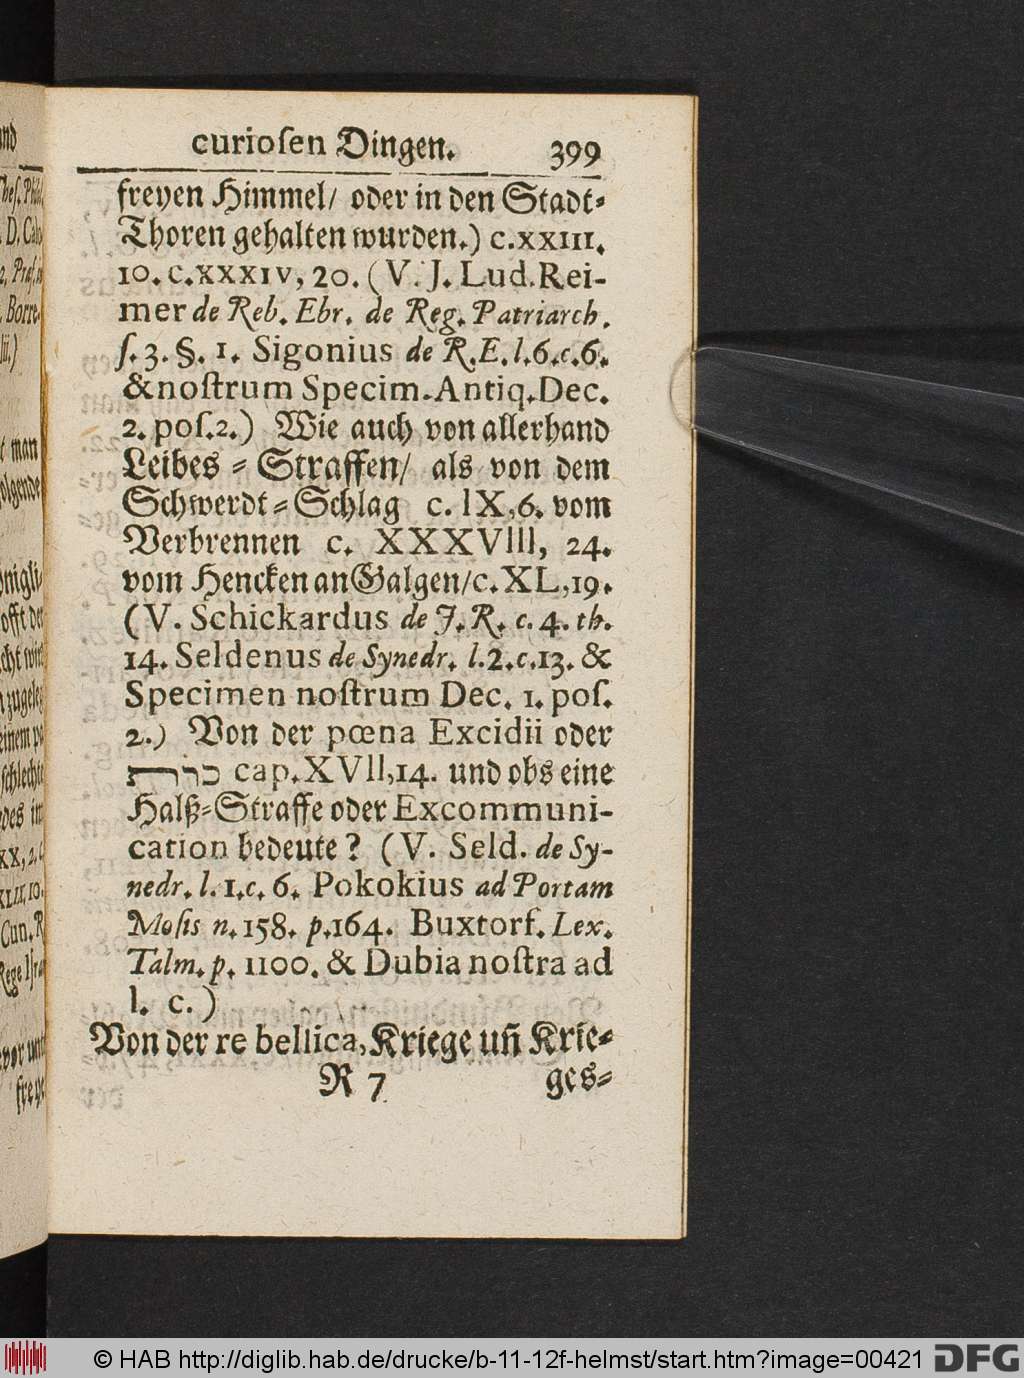 curiosen Dingen. 399
freyen Himmel/ oder in den Stadt-
Thoren gehalten wurden.) c.XXIII.
10. c.XXXIV, 20. (V. J. Lud. Rei-
mer de Reb. Ebr. de Reg. Patriarch.
ſ. 3. §. 1. Sigonius de R. E. l. 6. c. 6.
& noſtrum Specim. Antiq. Dec.
2. poſ. 2.) Wie auch von allerhand
Leibes-Straffen/ als von dem
Schwerdt-Schlag c. IX, 6. vom
Verbrennen c. XXXVIII, 24.
vom Hencken an Galgen/ c. XL, 19.
(V. Schickardus de J. R. c. 4. th.
14. Seldenus de Synedr. l. 2. c. 13. &
Specimen noſtrum Dec. 1. poſ.
2.) Von der pœna Excidii oder
כרת cap. XVII, 14. und obs eine
Halß-Straffe oder Excommuni-
cation bedeute? (V. Seld. de Sy-
nedr. l. 1. c. 6. Pokokius ad Portam
Moſis n. 158. p. 164. Buxtorf. Lex.
Talm. p. 1100. & Dubia noſtra ad
l. c.)
Von der re bellica, Kriege uñ Krie-
R 7 ges-
© HAB http://diglib.hab.de/drucke/b-11-12f-helmst/start.htm?image=00421 DFG